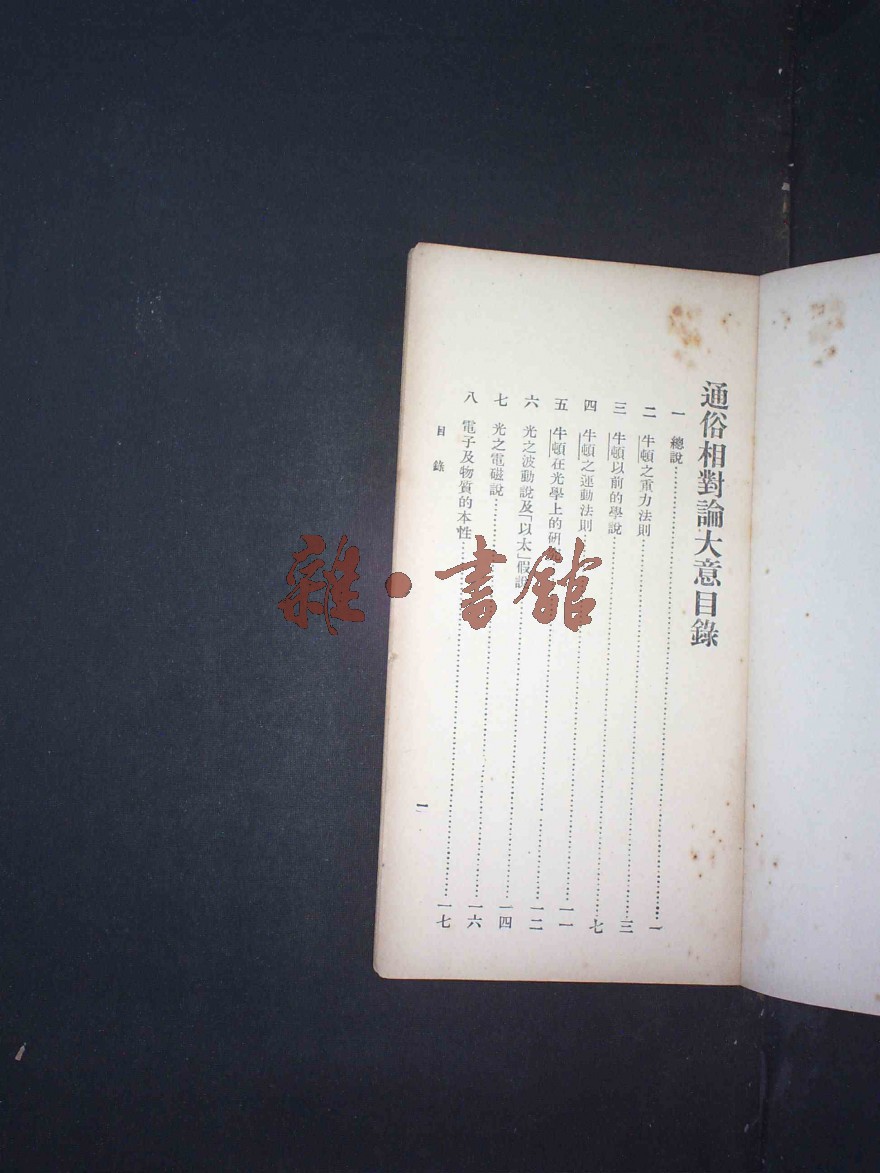 通俗相對論大意目錄
一 總說……一
二 牛頓之重力法則……三
三 牛頓以前的學說……七
四 牛頓之運動法則……一一
五 牛頓在光學上的研……一二
六 光之波動說及「以太」假說……一四
七 光之電磁說……一六
八 電子及物質的本性……一七
目錄
一
雜·書館